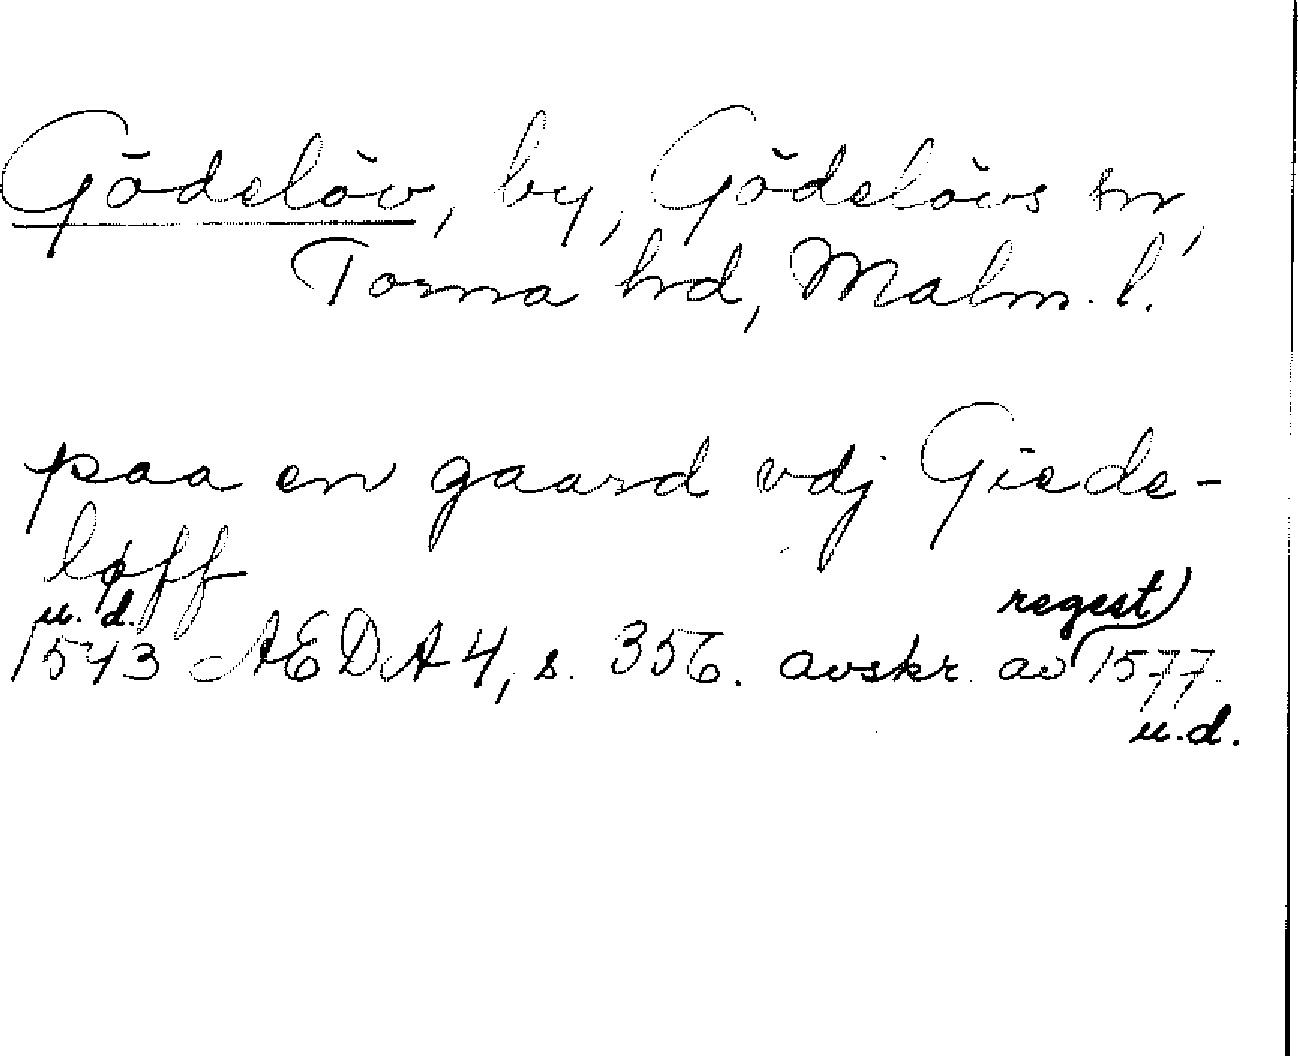 Gödelöv, by, Gödelövs sn,
Torna hd, Malm. l.
paa en gaard vdj Giede-
løff
u. d.
1543 AEDA 4, s. 356. avskr. av (regest) 1577
u.d.